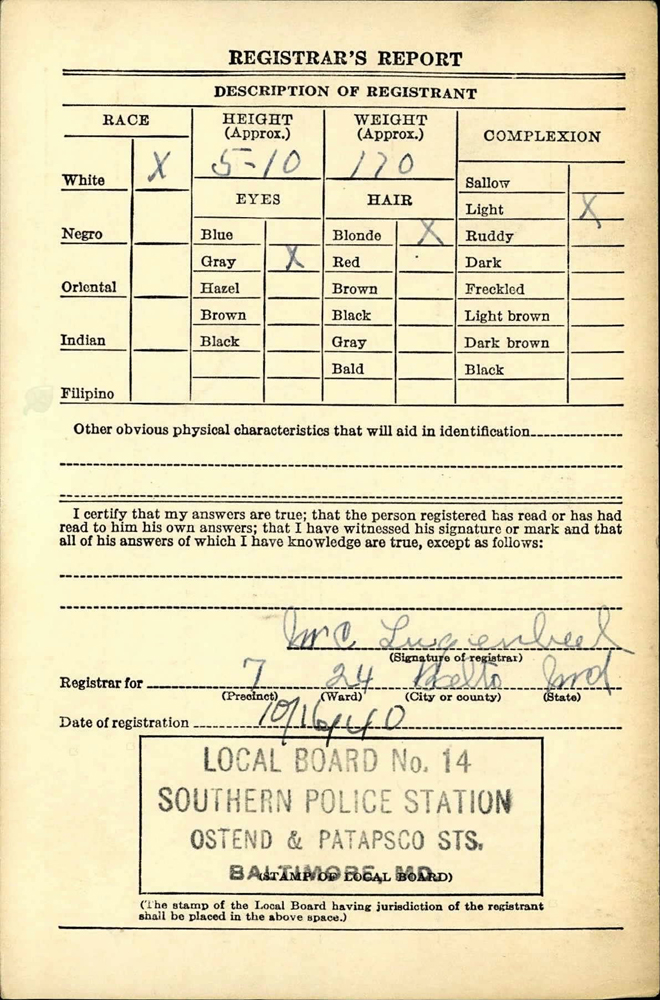 REGISTRAR'S REPORT
DESCRIPTION OF REGISTRANT
RACE
HEIGHT (Approx.)
WEIGHT (Approx.)
COMPLEXION
5-10
170
White X
Sallow
EYES
HAIR
Light X
Negro
Blue
Blonde X
Ruddy
Gray X
Red
Dark
Oriental
Hazel
Brown
Freckled
Brown
Black
Light brown
Indian
Black
Gray
Dark brown
Bald
Black
Filipino
Other obvious physical characteristics that will aid in identification
I certify that my answers are true; that the person registered has read or has had
read to him his own answers; that I have witnessed his signature or mark and that
all of his answers of which I have knowledge are true, except as follows:
Lugenbeel
(Signature of registrar)
Registrar for 7 24 Balto Md
(Precinct) (Ward) (City or county) (State)
Date of registration 10/16/40
LOCAL BOARD No. 14
SOUTHERN POLICE STATION
OSTEND & PATAPSCO STS.
BALTIMORE, MD.
(STAMP OF LOCAL BOARD)
(The stamp of the Local Board having jurisdiction of the registrant
shall be placed in the above space.)